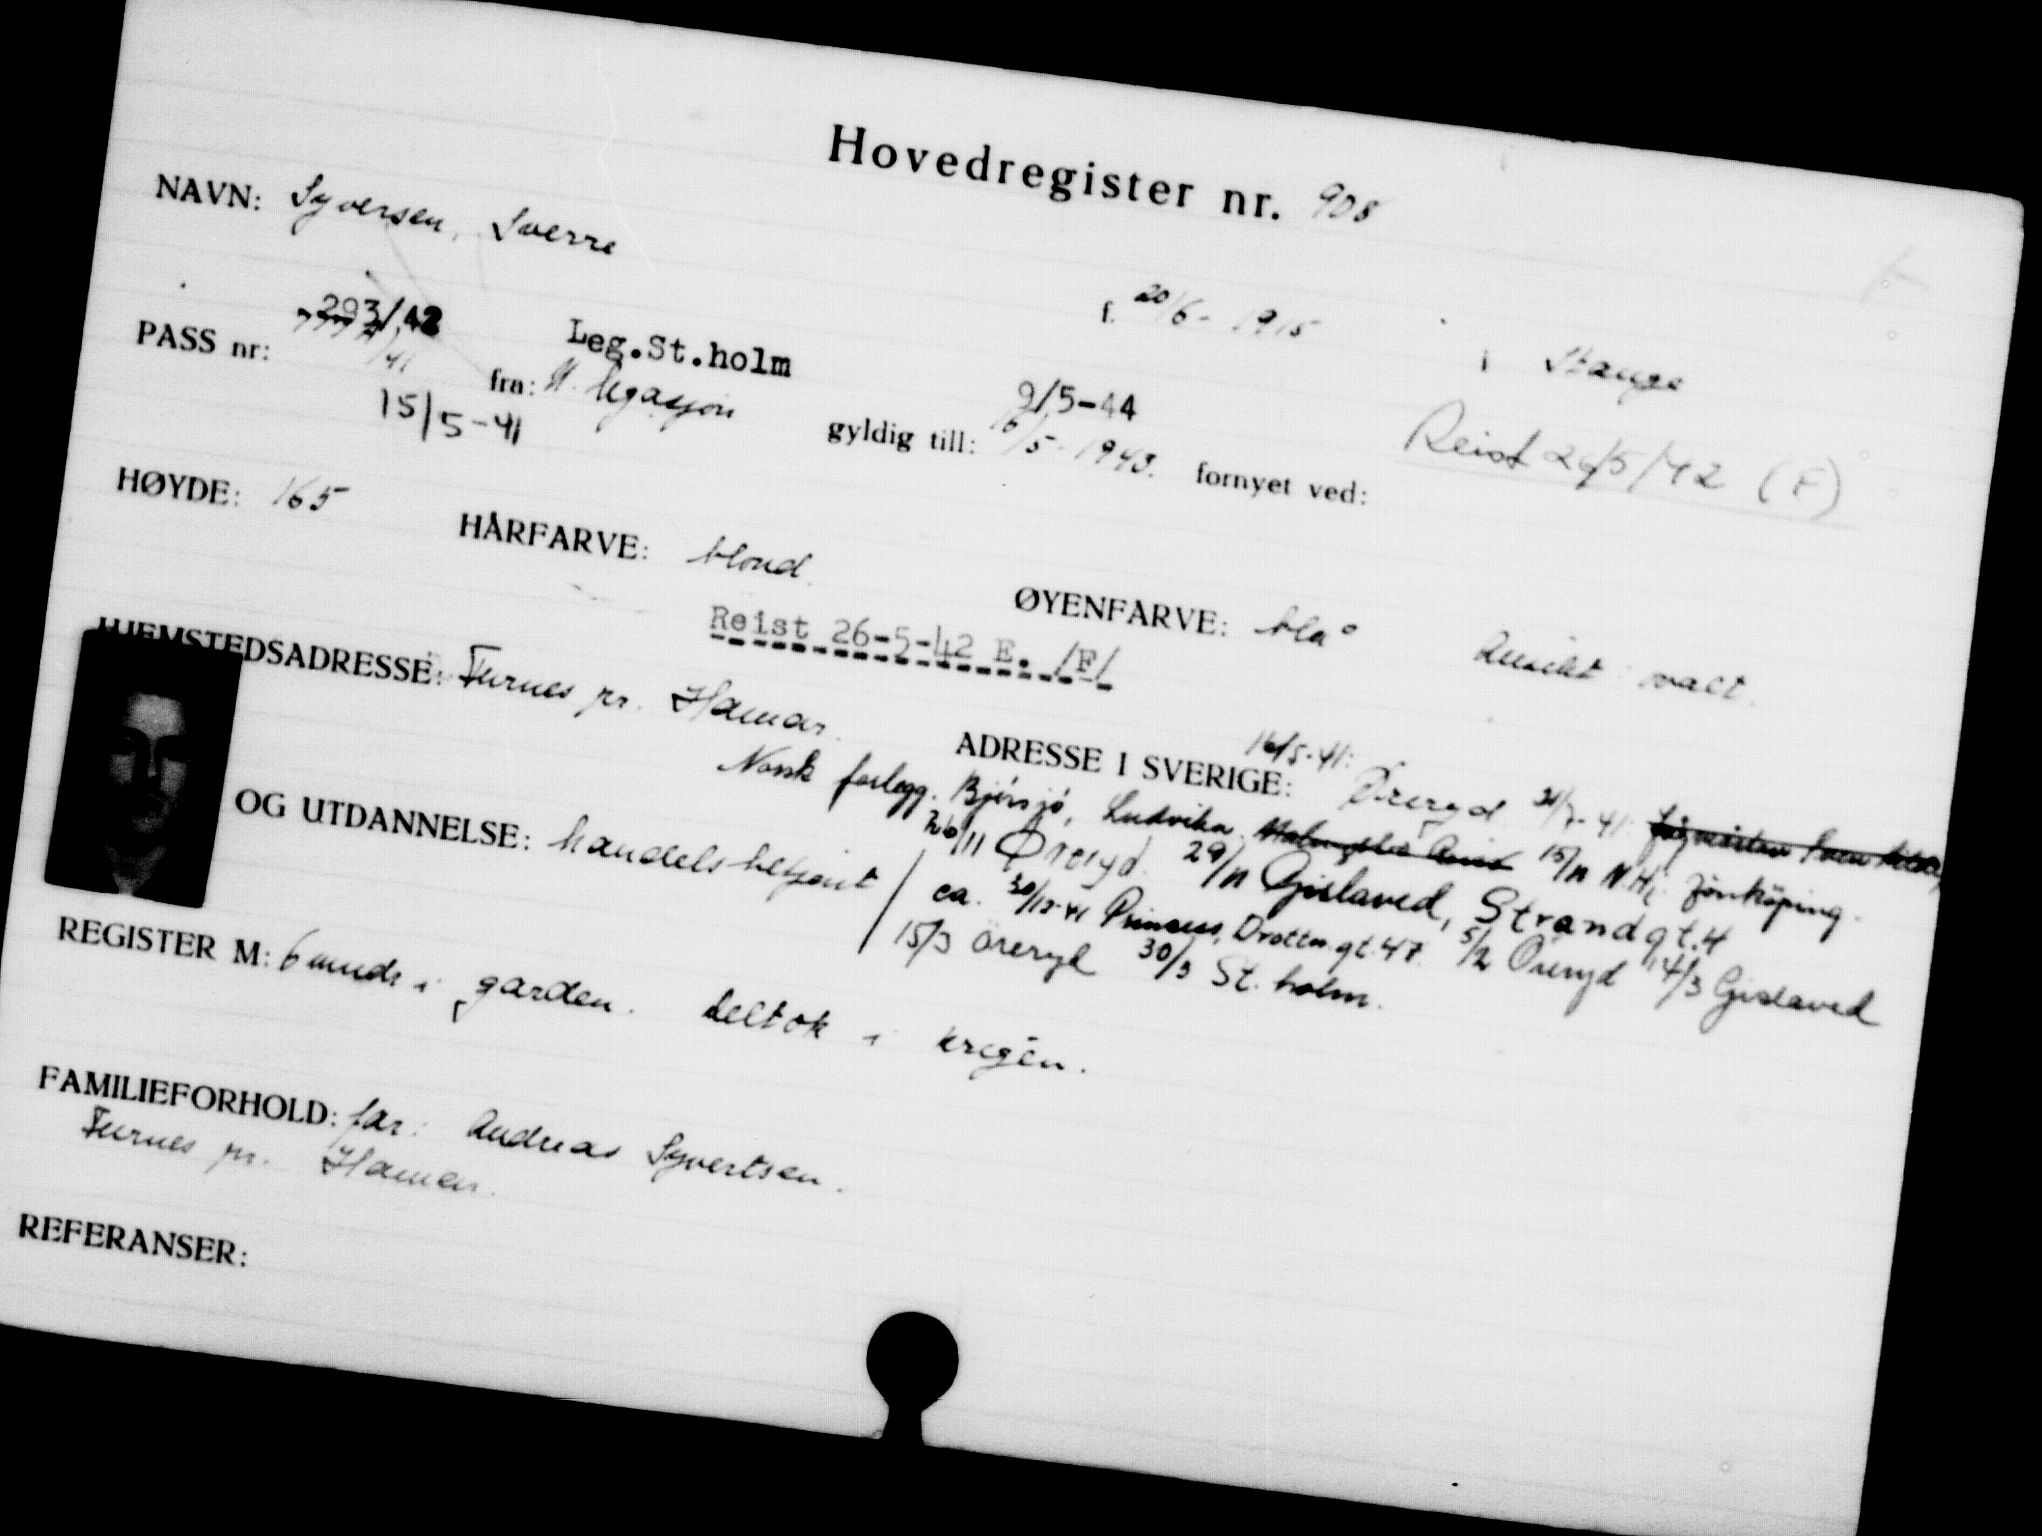 Hovedregister nr. 908
NAVN: Syversen, Sverre
f. 20/6 - 1915 i Stange
293/42 Leg.St.holm 9/5-44
PASS nr: /41 fra: N. legasjon gyldig till: 16/5 - 1943. fornyet ved:
15/5-41
Reist 26/5/42 (F)
HØYDE: 165 HÅRFARVE: blond. ØYENFARVE: blå Ansikt: ovalt.
Reist 26-5-42 E. /F/
HJEMSTEDSADRESSE: Furnes pr. Hamar.
ADRESSE I SVERIGE: 16/5-41: Øreryd 31/7-41:
Norsk forlegg. Bjørsjø, Ludvika. 15/11 N.H. Jönköping.
OG UTDANNELSE: handelsbetjent
26/11 Øreryd. 29/11 Gislaved, Strandgt. 4
ca. 30/12-41 Princess, Drottn.gt. 47. 5/2 Öreryd 14/3 Gislaved
15/3 Öreryd 30/3 St. holm.
REGISTER M: 6 mndr i garden. Deltok i krigen.
FAMILIEFORHOLD: far: Andreas Syvertsen.
Furnes pr. Hamar.
REFERANSER: